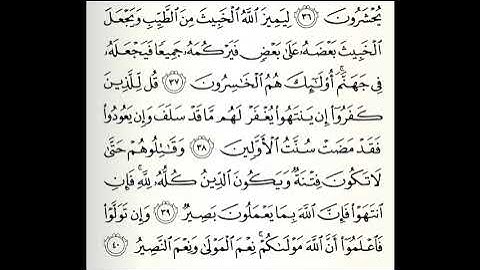 يُحْشَرُونَ ٣٦ لِيَمِيزَ ٱللَّهُ ٱلْخَبِيثَ مِنَ ٱلطَّيِّبِ وَيَجْعَلَ
ٱلْخَبِيثَ بَعْضَهُۥ عَلَىٰ بَعْضٍ فَيَرْكُمَهُۥ جَمِيعًا فَيَجْعَلَهُۥ
فِى جَهَنَّمَ ۚ أُو۟لَـٰٓئِكَ هُمُ ٱلْخَـٰسِرُونَ ٣٧ قُل لِّلَّذِينَ
كَفَرُوٓا۟ إِن يَنتَهُوا۟ يُغْفَرْ لَهُم مَّا قَدْ سَلَفَ وَإِن يَعُودُوا۟
فَقَدْ مَضَتْ سُنَّتُ ٱلْأَوَّلِينَ ٣٨ وَقَـٰتِلُوهُمْ حَتَّىٰ
لَا تَكُونَ فِتْنَةٌ وَيَكُونَ ٱلدِّينُ كُلُّهُۥ لِلَّهِ ۚ فَإِنِ
ٱنتَهَوْا۟ فَإِنَّ ٱللَّهَ بِمَا يَعْمَلُونَ بَصِيرٌ ٣٩ وَإِن تَوَلَّوْا۟
فَٱعْلَمُوٓا۟ أَنَّ ٱللَّهَ مَوْلَىٰكُمْ ۚ نِعْمَ ٱلْمَوْلَىٰ وَنِعْمَ ٱلنَّصِيرُ ٤٠